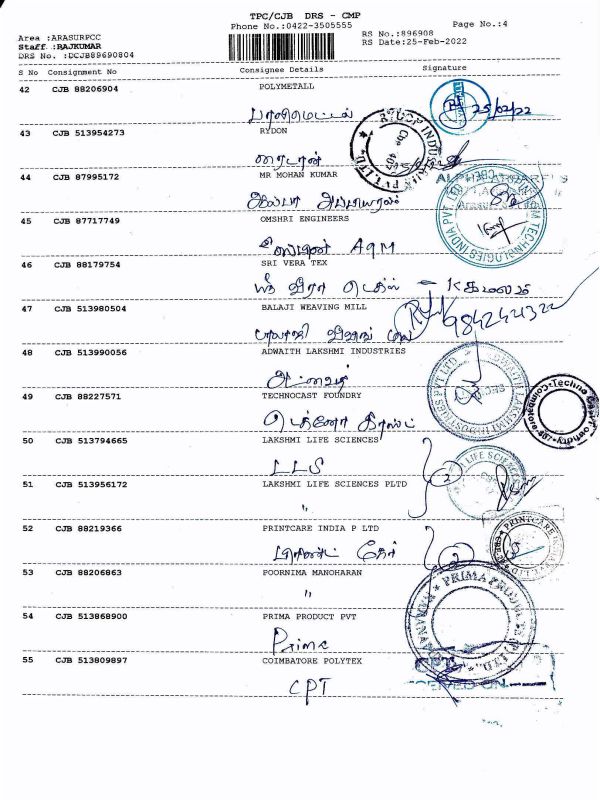 TPC/CJB DRS - CMP
Phone No.:0422-3505555
Page No.:4
Area :ARASURPCC
RS No.:896908
Staff :RAJKUMAR
RS Date:25-Feb-2022
DRS No. :DCJB89690804
S No Consignment No Consignee Details Signature
42 CJB 88206904 POLYMETALL
பாலிமெட்டல் 25/02/22
43 CJB 513954273 RYDON
ரைடான்
44 CJB 87995172 MR MOHAN KUMAR
45 CJB 87717749 OMSHRI ENGINEERS
AQM
46 CJB 88179754 SRI VERA TEX
ஸ்ரீ வீரா டெக்ஸ்
47 CJB 513980504 BALAJI WEAVING MILL
பாலாஜி வீவிங் மில்
48 CJB 513990056 ADWAITH LAKSHMI INDUSTRIES
அட்வைத்
49 CJB 88227571 TECHNOCAST FOUNDRY
டெக்னோ காஸ்ட்
50 CJB 513794665 LAKSHMI LIFE SCIENCES
LLS
51 CJB 513956172 LAKSHMI LIFE SCIENCES PLTD
"
2
52 CJB 88219366 PRINTCARE INDIA P LTD
பிரிண்ட் கேர் 2
53 CJB 88206863 POORNIMA MANOHARAN
"
54 CJB 513868900 PRIMA PRODUCT PVT
Prime
55 CJB 513809897 COIMBATORE POLYTEX
CPT